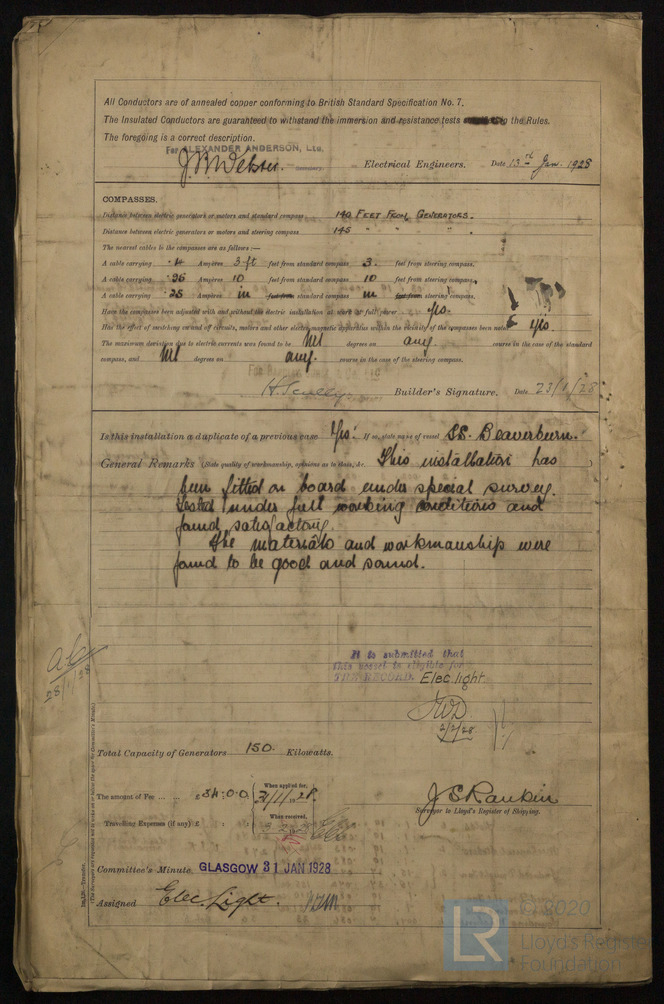 All Conductors are of annealed copper conforming to British Standard Specification No. 7.
The Insulated Conductors are guaranteed to withstand the immersion and resistance tests the Rules.
The foregoing is a correct description.
For ALEXANDER ANDERSON, LTD.
J Webster. Electrical Engineers. Date 13th Jan. 1928
COMPASSES.
Distance between electric generators or motors and standard compass 140 FEET FROM GENERATORS.
Distance between electric generators or motors and steering compass 145 " " "
The nearest cables to the compasses are as follows:—
A cable carrying .4 Ampères 3-ft feet from standard compass 3. feet from steering compass.
A cable carrying .36 Ampères 10 feet from standard compass 10 feet from steering compass.
A cable carrying .28 Ampères in feet from standard compass in feet from steering compass.
Have the compasses been adjusted with and without the electric installation at work at full power Yes.
Has the effect of switching on and off circuits, motors and other electro-magnetic apparatus within the vicinity of the compasses been noted Yes.
The maximum deviation due to electric currents was found to be Nil degrees on any course in the case of the standard
compass, and Nil degrees on any. course in the case of the steering compass.
H. Scully Builder's Signature. Date 23/1/28
Is this installation a duplicate of a previous case Yes. If so, state name of vessel S.S. Beaverburn.
General Remarks (State quality of workmanship, opinions as to class, &c. This installation has
been fitted on board under special survey.
Tested under full working conditions and
found satisfactory.
The materials and workmanship were
found to be good and sound.
28/1/28
It is submitted that
this vessel is eligible for
THE RECORD. Elec light
JWD
2/2/28
Total Capacity of Generators 150. Kilowatts.
The amount of Fee ... ... £ 34:0:0 When applied for, 31/1/1928
J S Rankin
Surveyor to Lloyd's Register of Shipping.
Travelling Expenses (if any) £ : : When received,
Committee's Minute. GLASGOW 31 JAN 1928
Assigned Elec. Light.
© 2020
LR
Lloyd's Register
Foundation